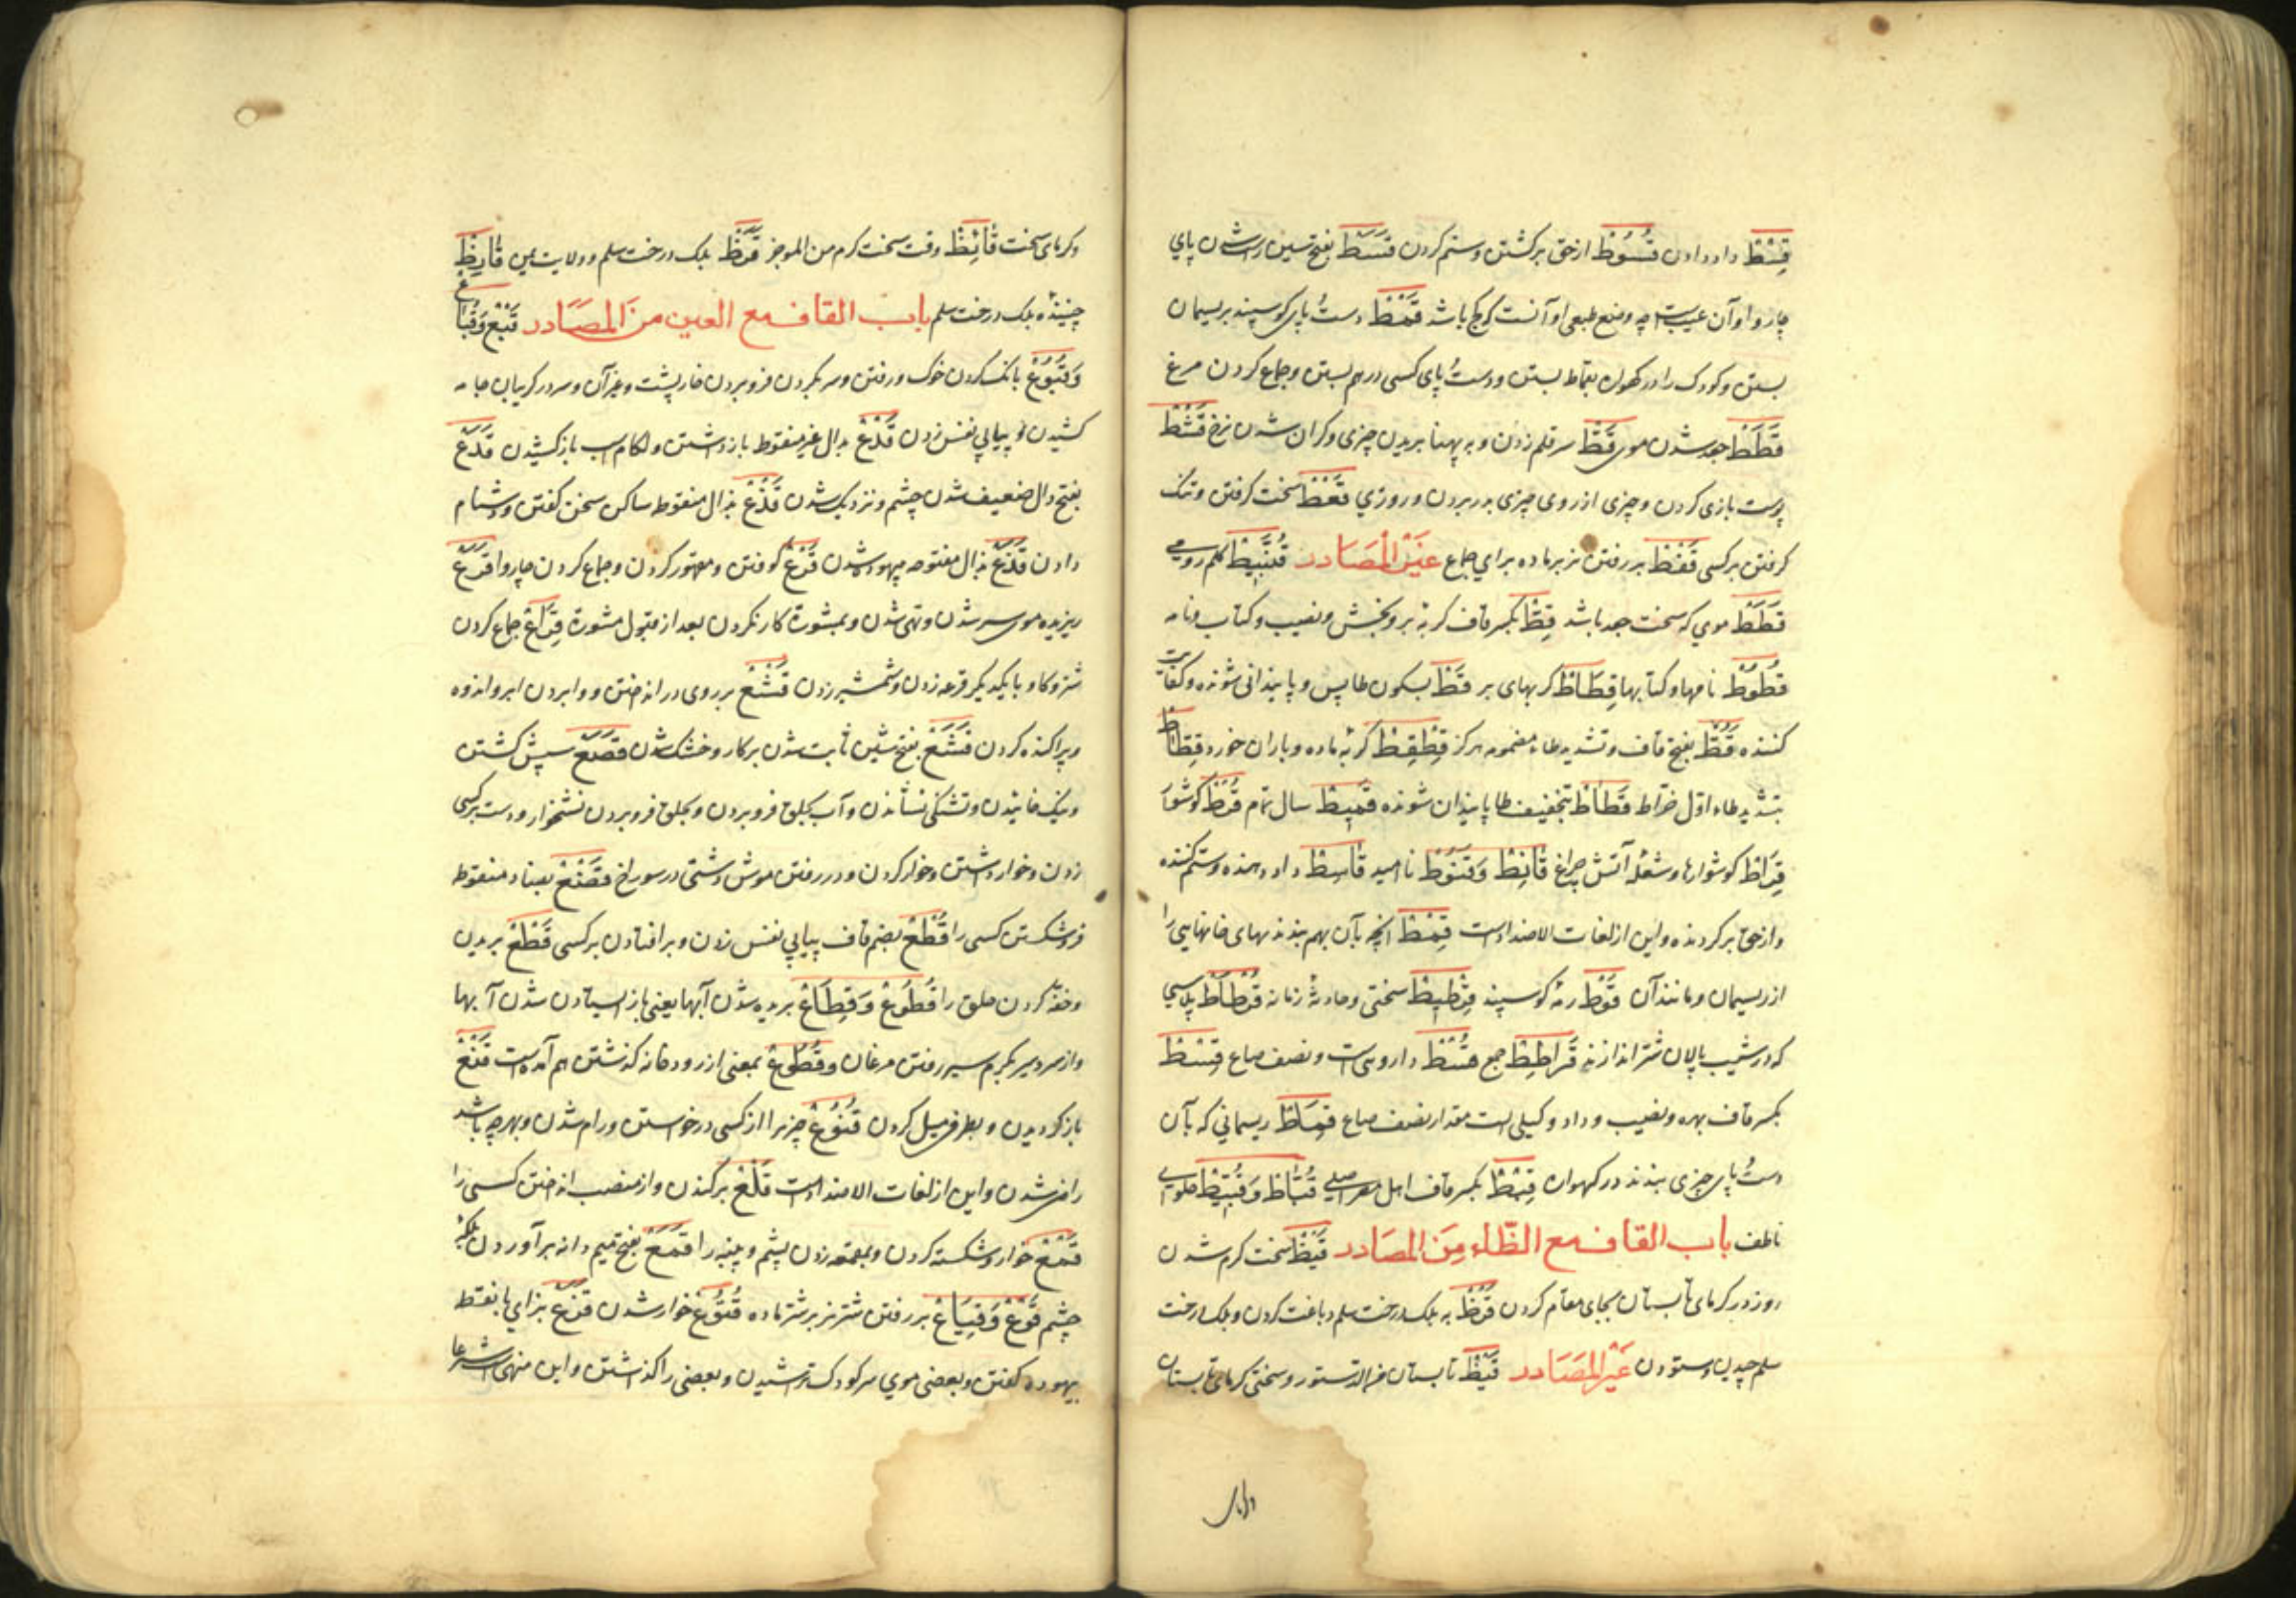 قِسْط داد دادن قُسُوط از حق برگشتن و ستم کردن قَسَط بفتح سین راست شدن پای
چاروا و آن عیبست چه وضع طبعی او آنست که کج باشد قَمْط دست و پای گوسپند بریسمان
بستن و کودک را در گهواره بقماط بستن و دست و پای کسی در هم بستن و جماع کردن مرغ
قَطَط جعد شدن موی قَطّ سر قلم زدن و بر پهنا بریدن چیزی و گران شدن نرخ قَشْط
پوست بازی کردن و چیزی از روی چیزی بدر بردن و روزی قَعْط سخت گرفتن و تنگ
گرفتن بر کسی قَفْط بر رفتن نر بر ماده برای جماع غَیْرُ الْمَصَادر قُنَّبِیْط کلم رومی
قَطَط موی که سخت جعد باشد قِطّ بکسر قاف گربه نر و بخش و نصیب و کتاب و نامه
قُطُوْط نامها و کتابها قِطَاط گربهای نر قَطْ بسکون طا پس و پایندانی شونده و کفایت
کننده قَطُّ بفتح قاف و تشدید طاء مضمومه هرگز قِطْقِط گربه ماده و باران خورد قَطَّاط
بتشدید طاء اول خراط قَطَاط بتخفیف طا پایندان شونده قَمِیط سال تمام قُرْط گوشوار
قِرَاط گوشوارها و شعله آتش چراغ قَانِط وَقَنُوْط ناامید قَاسِط داد دهنده و ستم کننده
و از حق برگردنده و این از لغات الاضداد است قِمْط آنچه بآن بهم بندند نهای خانهایی را
از ریسمان و مانند آن قَوْط رمه گوسپند سختی و حادثه زمانه قُرْطَاط پلاسی
که در شیب پالان شتر اندازند قَرَاطِیط جمع قُسْط دارویی است و نصف صاع قِسْط
بکسر قاف بهره و نصیب و داد و کیلی است مقدار نصف صاع قِمَاط ریسمانی که بآن
دست و پای چیزی بندند در گهواره قِبْط بکسر قاف اهل مصر اصلی قُبَّاط وَقُبَّیْط حلوای
ناطف باب القاف مع الظّاء مِنَ المصَادر قَیْظ سخت گرم شدن
روز در گرمای تابستان بجای مقام کردن قَرْظ به بلک درخت سلم دباغت کردن و بلک درخت
سلم چیدن و ستودن غَیْرُالمَصَادر قَیْظ تابستان من الدستور و سختی گرمای تابستان
و گرمای سخت قَائِظ وقت سخت گرم من الموجز قَرَظ بلک درخت سلم و ولایت یمن قَارِظ
چیننده بلک درخت سلم باب القاف مع العین منَ المصَادر قَبْع وَقُبَاع
وَقُبُوْع بانک کردن خوک و رفتن و سر بگردن فرو بردن خارپشت و غیر آن و سر در گریبان جامه
کشیدن و پیاپی نفس زدن قَدْع بدال غیر منقوط باز داشتن و لگام اسب باز کشیدن قَدَع
بفتح دال ضعیف شدن چشم و نزدیک شدن قَذْع بذال منقوط ساکن سخن گفتن و دشنام
دادن قَذَع بذال مفتوحه بیهوده شدن قَرْع کوفتن و مقهور کردن و جماع کردن چاروا قَرَع
ریزیده موی سر شدن و تهی شدن و بمشورة کار نکردن بعد از قبول مشورة قِرَاع جماع کردن
شتر و گاو با یکدیگر قرعه زدن و شمشیر زدن قَشْع بر روی در انداختن و وا بردن ابر و اندوه
و پراکنده کردن قَشَع بفتح شین ثابت شدن بر کار و خشک شدن قَصْع سپش کشتن
و نیک خائیدن و تشنگی نشاندن و آب بحلق فرو بردن و بحلق فرو بردن نشخوار و دست بر کسی
زدن و خوار داشتن و خوار کردن و در رفتن موش دشتی در سوراخ قَضْع بضاد منقوط
فرو شکستن کسی را قُطْع بضم قاف پیاپی نفس زدن و بر افتادن بر کسی قَطْع بریدن
و خفه کردن حلق را قُطُوْع وَقِطَاع بریده شدن آبها یعنی باز ایستادن شدن آبها
و از سردسیر بگرم سیر رفتن مرغان و قُطُوْع بمعنی از رودخانه گذشتن هم آمده است قَنْع
باز گردیدن و بطرفی میل کردن قُنُوْع چیزی را از کسی درخواستن و رام شدن و بهرچه باشد
راضی شدن و این از لغات الاضداد است قَلْع برکندن و از منصب انداختن کسی را
قَمْع خوار و شکسته کردن و بمقمعه زدن پشم و پنبه را قَمَع بفتح میم دانه برآوردن پلک
چشم قَوْع وَقِیَاع بر رفتن شتر نر بر شتر ماده خوار شدن قَزَع بزای با نقطه
بیهوده گفتن و بعضی موی سر کودک تراشیدن و بعضی را گذاشتن و این منهی است شرعا